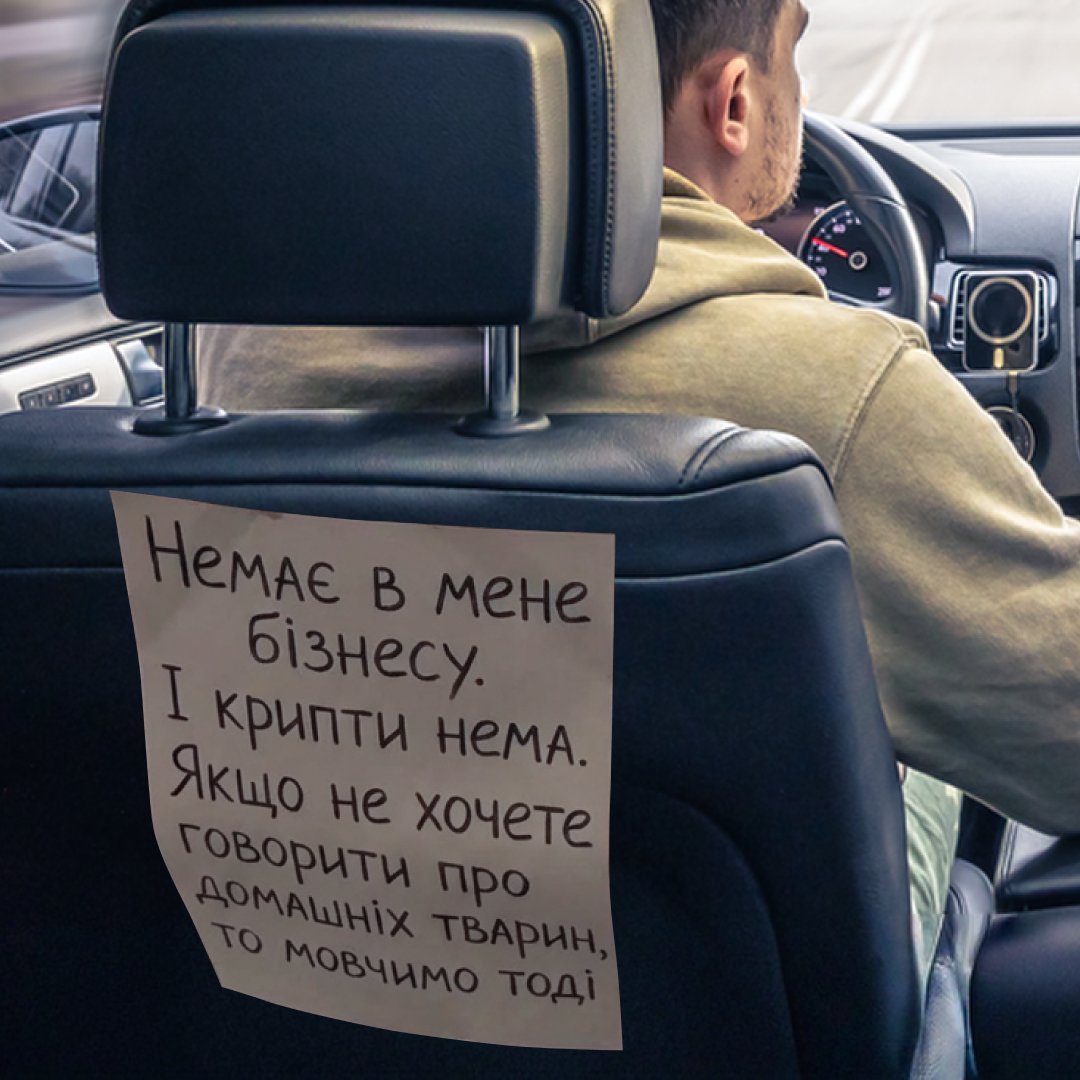 Немає в мене
бізнесу.
І крипти нема.
Якщо не хочете
говорити про
домашніх тварин,
то мовчимо тоді